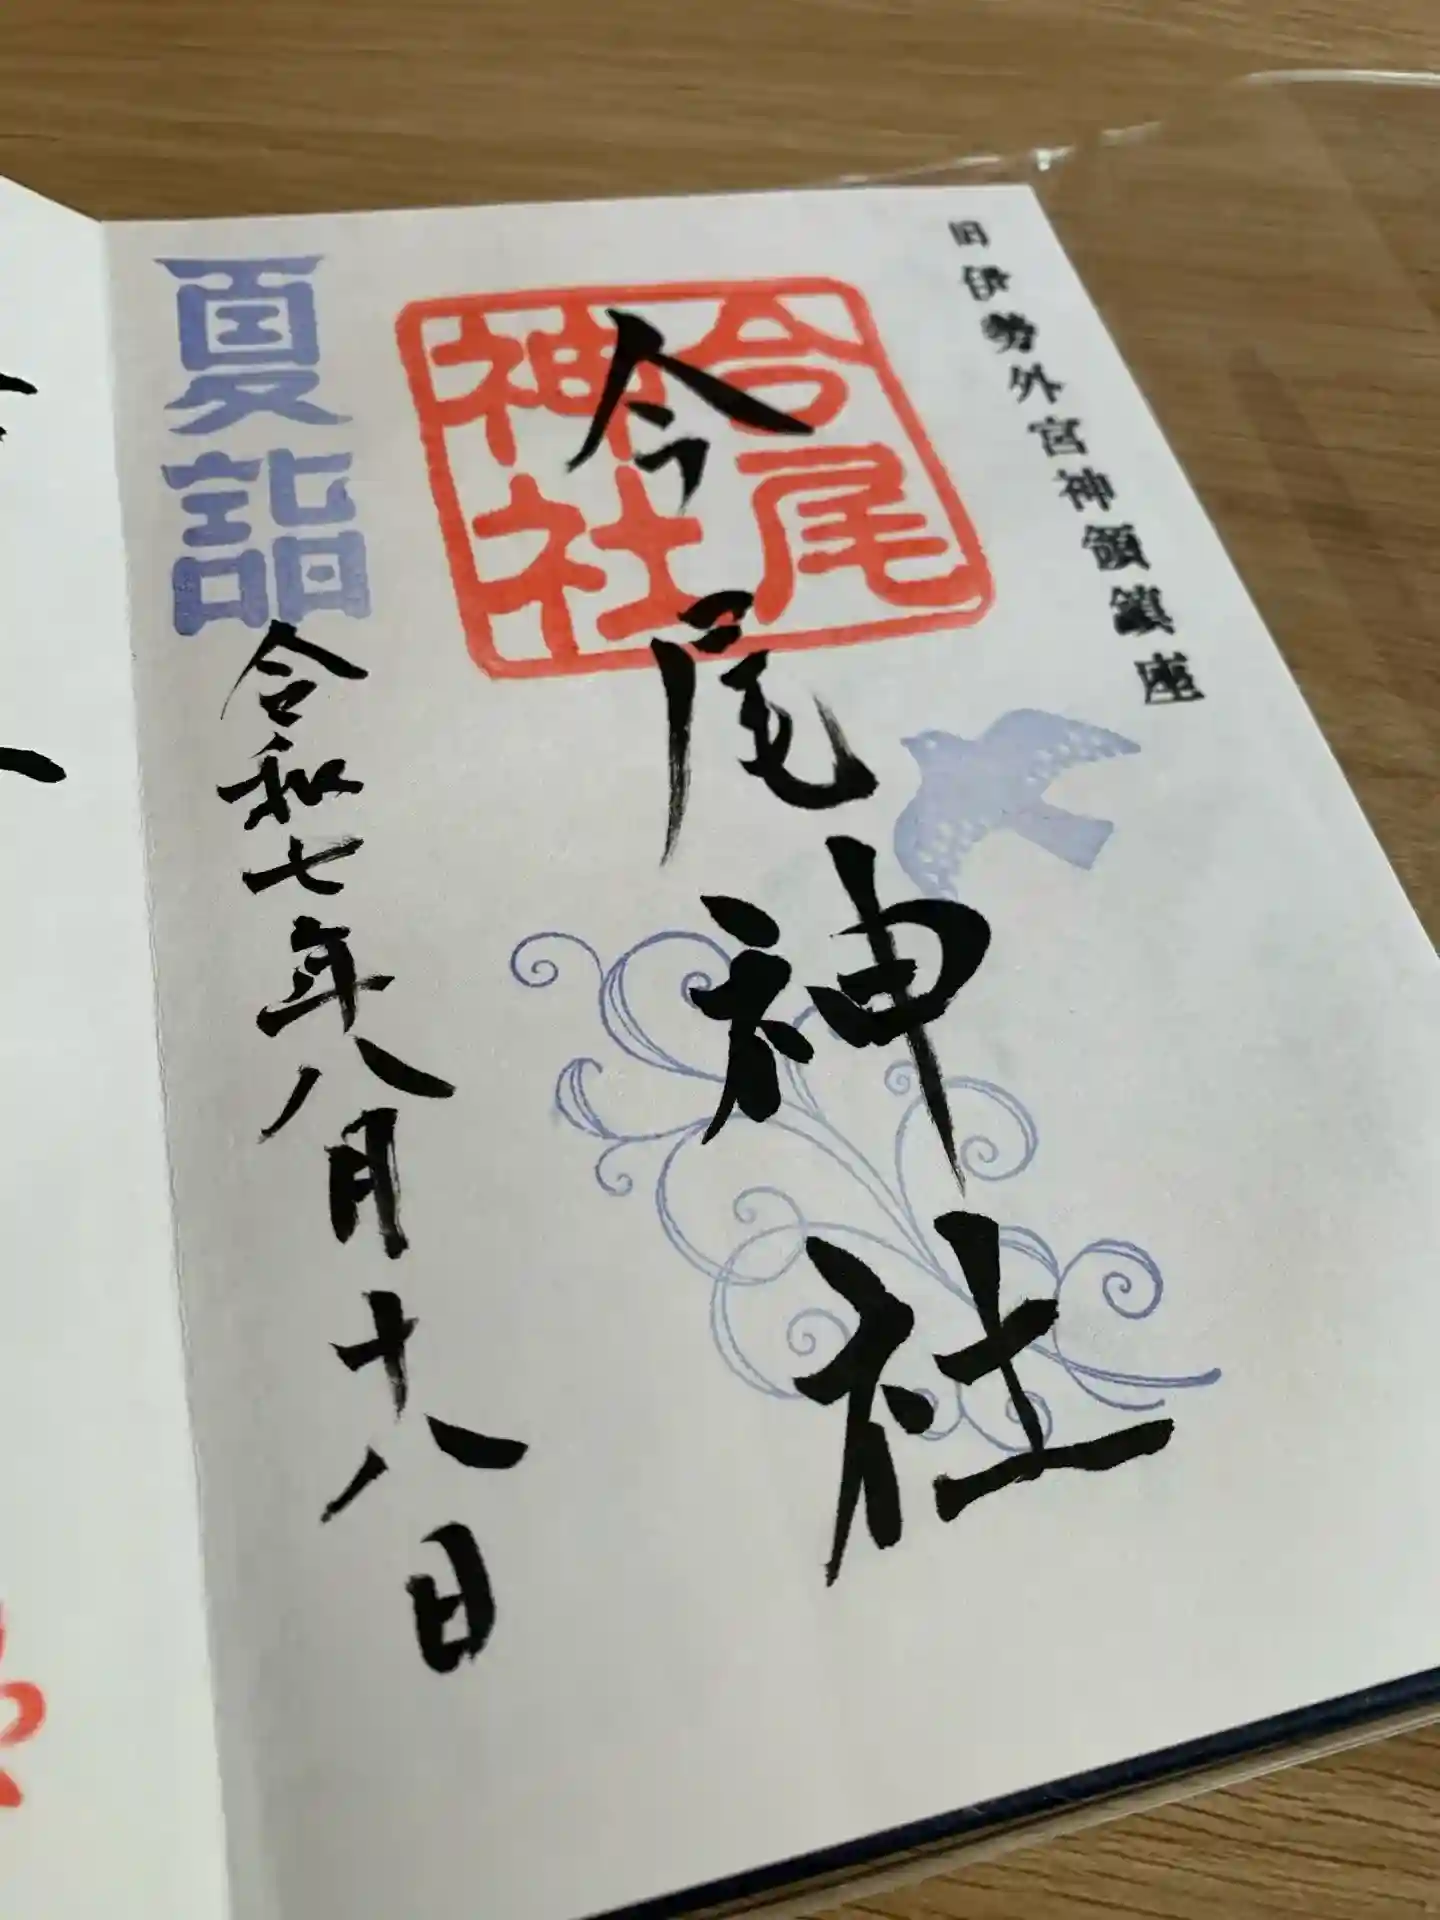 旧伊勢外宮神領鎮座
今尾神社
今尾
神社
夏詣
令和七年八月十八日